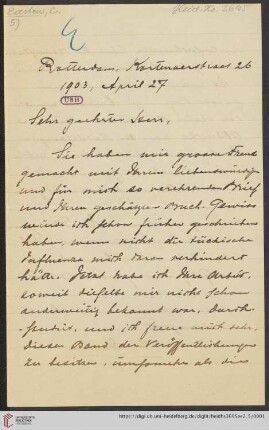 Rotterdam, Kortenaerstraat 26
1903, April 27
UBH
Sehr geehrter Herr,
Sie haben mir grosse Freude
gemacht mit Ihrem liebenswürdigen
und für mich so verehrenden Brief
und Ihrem geschätzten Buch. Gewiss
würde ich schon früher geschrieben
haben, wenn nicht die tückische
Influenza mich daran verhindert
hätte. Jetzt habe ich Ihre Arbeit,
soweit dieselbe mir nicht schon
anderweitig bekannt war, durch-
studirt, und ich freue mich sehr,
diesen Band der Veröffentlichungen
zu besitzen, umsomehr als die
https://digi.ub.uni-heidelberg.de/diglit/
UNIVERSITÄTS-
BIBLIOTHEK
HEIDELBERG